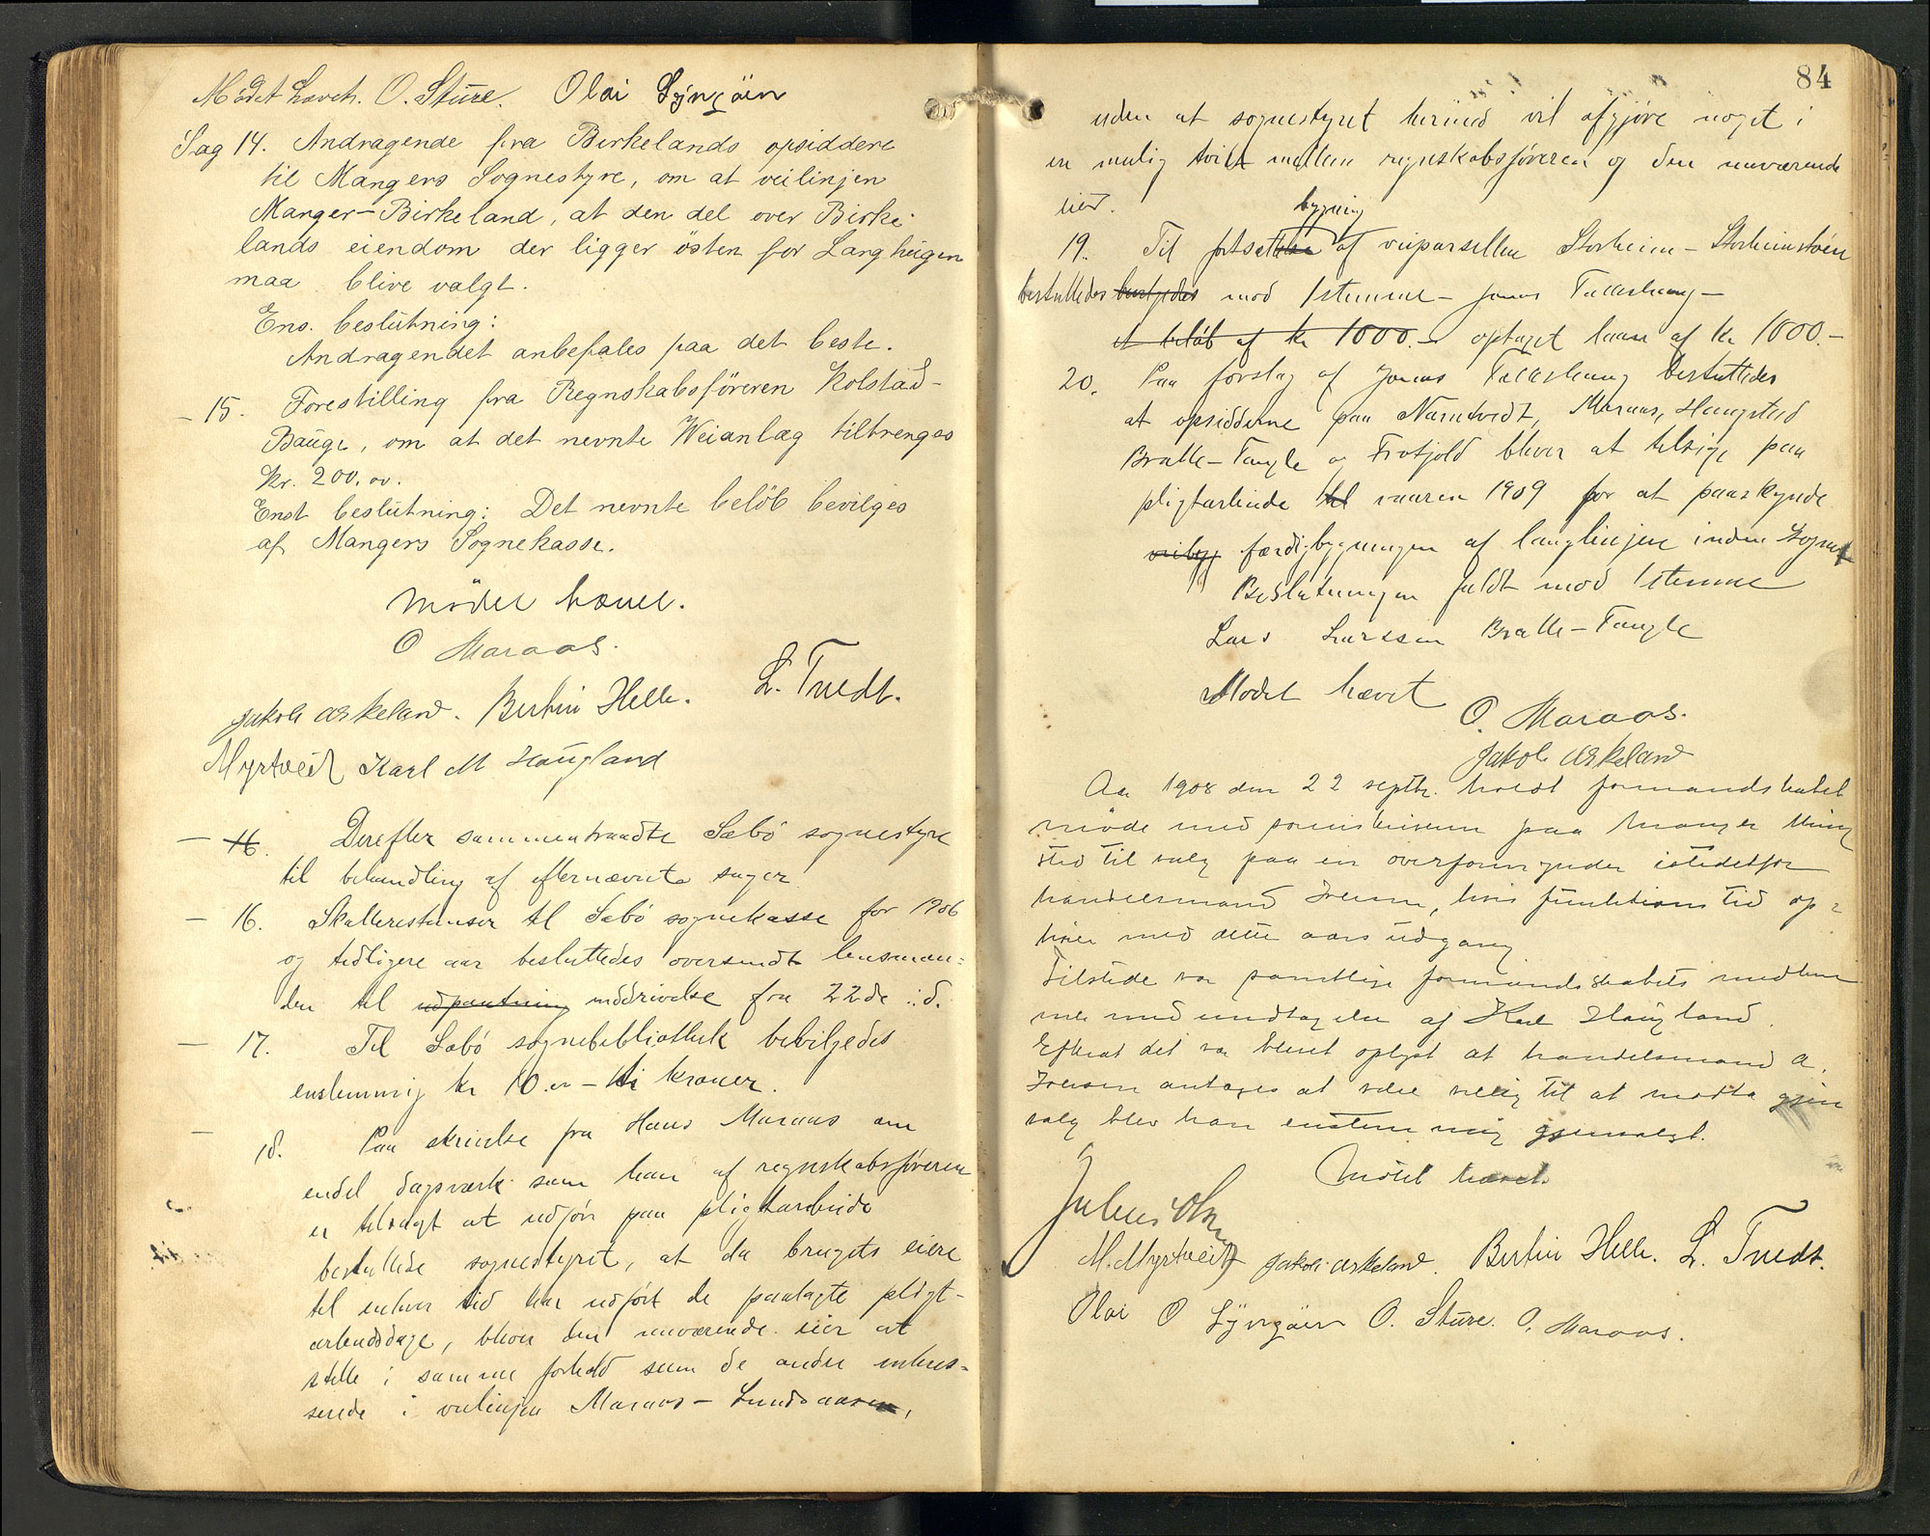 Mödet hævet. O. Sture. Olai Lÿngöien
Sag 14. Andragende fra Birkelands opsiddere
til Mangers Sognestyre, om at veilinjen
Manger-Birkeland, at den del over Birke-
lands eiendom der ligger östen for Langhügen
maa blive valgt.
Ens. beslütning:
Andragendet anbefales paa det beste.
- 15. Forestilling fra Regnskabsföreren Kolstad-
Baüge, om at det nevnte Weianlæg tiltrenges
kr. 200.00.
Enst beslütning: Det nevnte belöb bevilges
af Mangers Sognekasse.
Mödet hævet.
O Maraas.
L. Tvedt.
Jakob Askeland. Bertin Helle.
Myrtveit Karl M Haügland
- 16. Derefter sammentraadte Sæbö sognestyre
til behandling af efternævnte sager
- 16. Skatterestanser til Sæbö sognekasse for 1906
og tidligere aar besluttedes oversendt lensman=
den til udpantning inddrivelse fra 22de d.
- 17. Til Sæbö sognebibliothek bevilgedes
enstemmig kr 10.00 - ti kroner.
-
18. Paa skrivelse fra Hans Maraas om
endel dagsværk som han af regnskabsföreren
er tilsagt at udföre paa pligtarbeide
besluttede sognestyret, at da brugets eiere
til enhver tid har udfört de paalagte pligt-
arbeidsdage, bliver den nuværende eier at
stille i samme forhold som de andre intres-
serede i veilinjen Maraas - Lundsaasen,
84
uden at sognestyret herved vil afgjöre noget i
en mulig tvist mellem regnskabsföreren og den nuværende
eier.
bygning
19. Til fortsættelse af veiparsellen Storheim - Storheimstöen
besluttedes mod 1 stemme - Jonas Tælleshaug -
et belöb af kr 1000.- optaget laan af kr 1000.-
20. Paa forslag af Jonas Tælleshaug besluttedes
at opsidderne paa Naratvedt, Maraas, Haugstad
Bratle-Taugle og Frotjold bliver at tilsige paa
pligtarbeide til vaaren 1909 for at paaskynde
veibyg færdigbygningen af langlinjen inden Sognet
Beslutningen fuldt mod 1 stemme
Lars Larssen Bratle-Taugle
Mödet hævet
O. Maraas.
Jakob Askeland
Aar 1908 den 22 septbr. holdt formandskabet
möde med paa Manger thing
sted til valg paa en overformynder istedetfor
handelsmand Iversen, hvis funktions tid op=
hörer med dette aars udgang
Tilstede var samtlige formandskabets medlem
mer med undtagelse af Karl Haugland.
Efterat det var blevet oplyst at handelsmand A.
Iversen antages at være villig til at modta gjen
valg blev han enstemmig gjenvalgt.
Mödet hævet.
Julius Olsen
M. Myrtveit Jakob Askeland. Bertin Helle. L. Tvedt.
Olai O Lÿngöien O. Sture. O. Maraas.